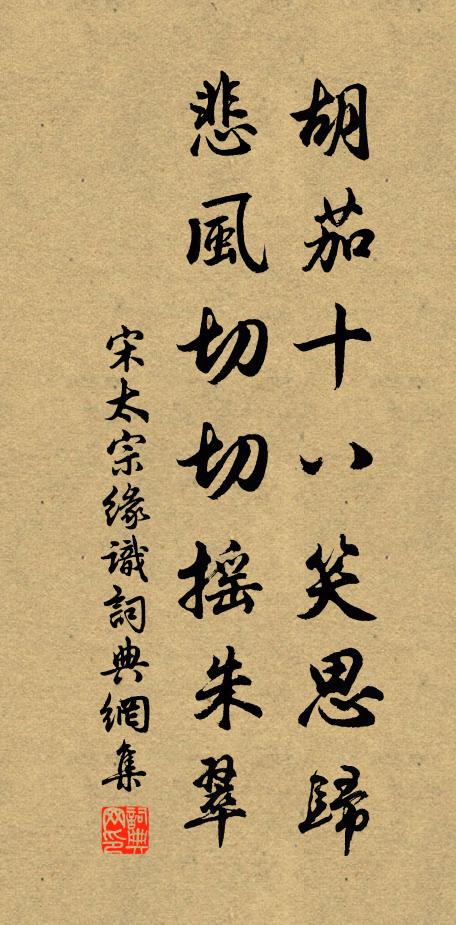 胡茄十八笑思歸
悲風切切摇朱翠
宋太宗緣識詞典網集
詞典网印